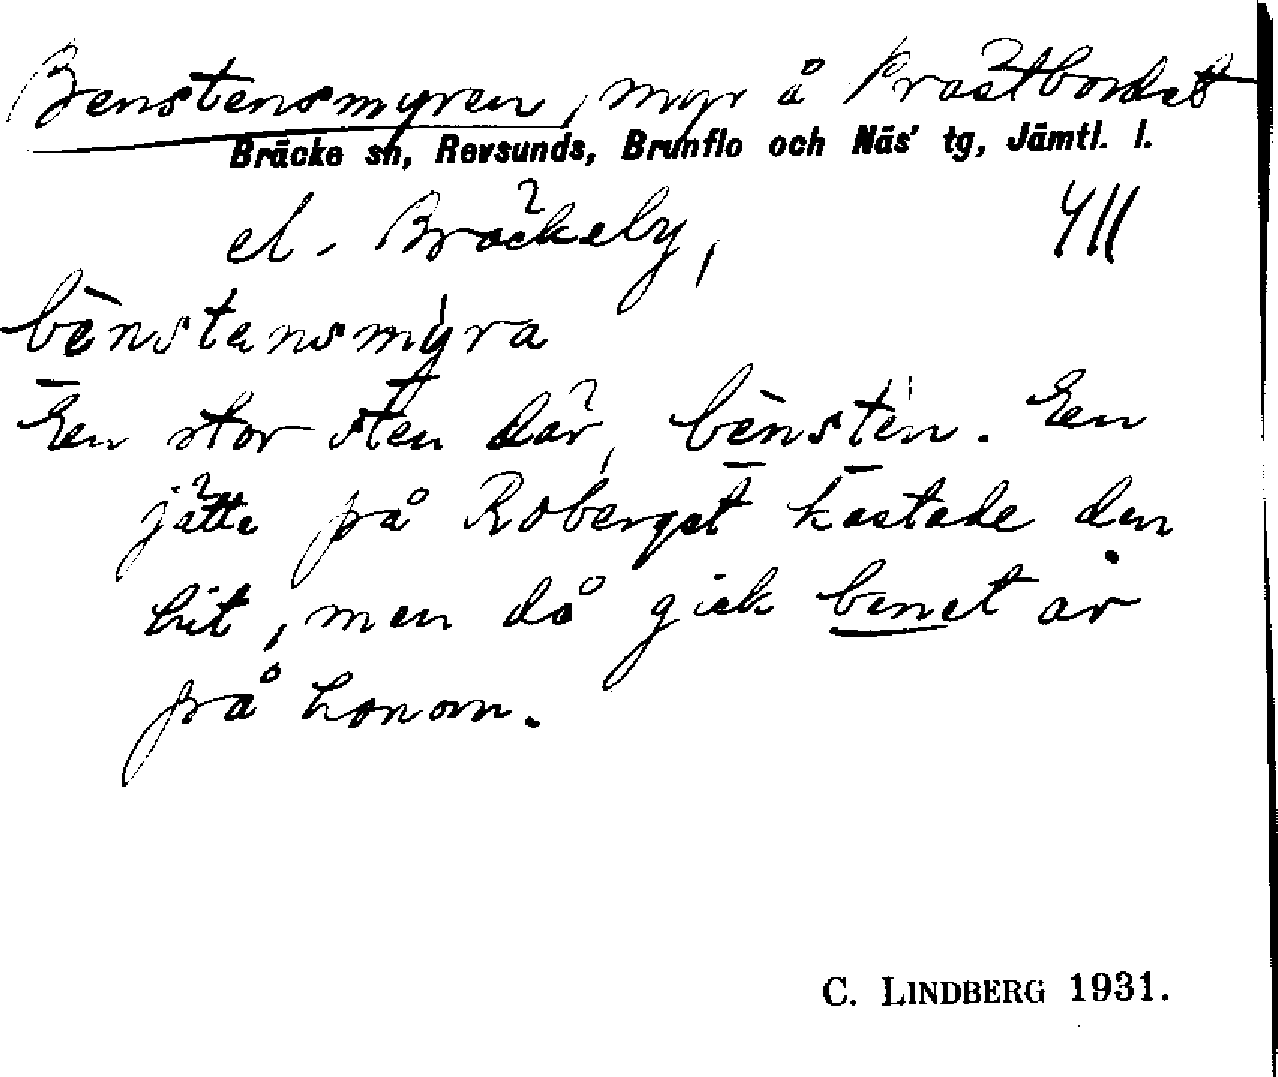 Benstensmyren, myr å Prästbordet
Bräcke sn, Revsunds, Brunflo och Näs' tg, Jämtl. l.
el. Bräckeby, 411
bènstensmýra
En stor sten där, bènstèn. En
jätte på Roberget kastade den
hit, men då gick benet av
på honom.
C. LINDBERG 1931.